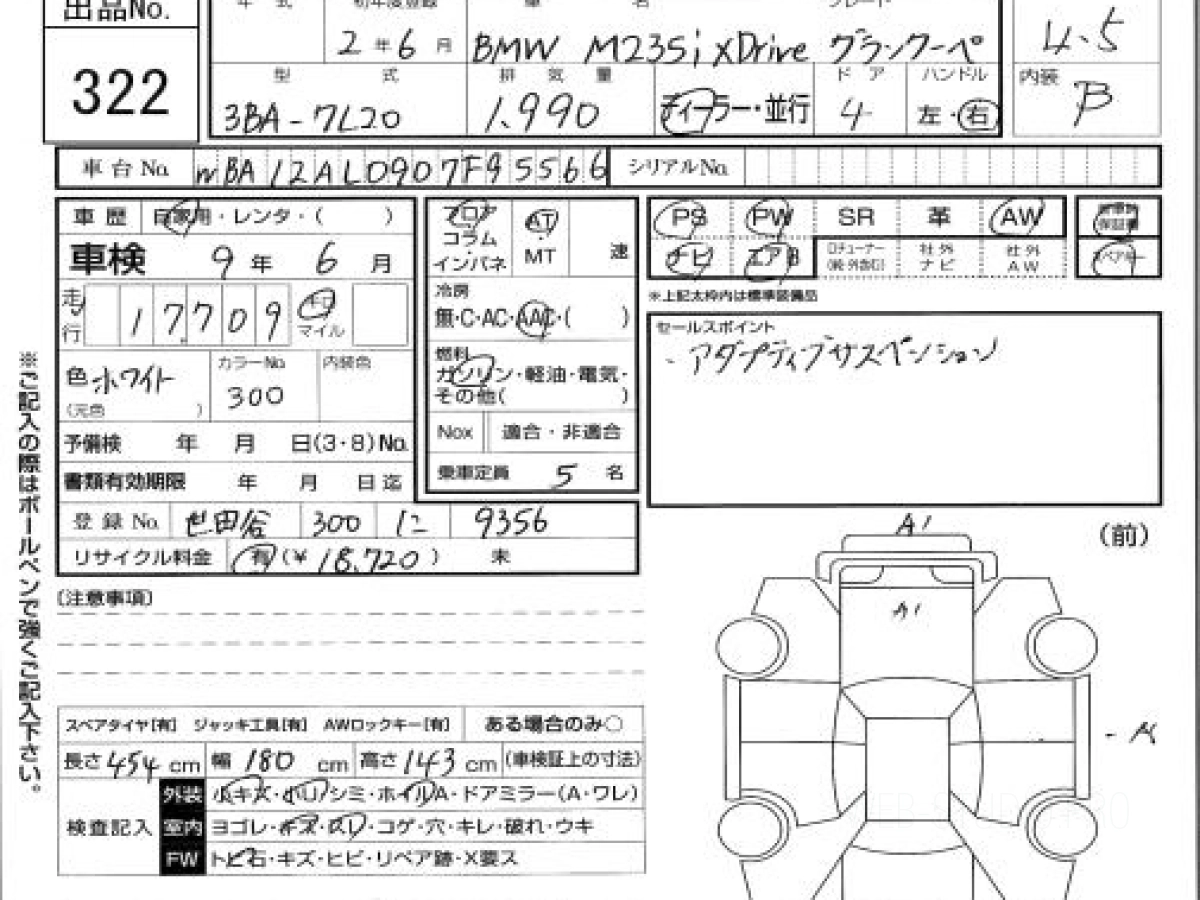 出品No.
322
年 式 初年度登録 車 名 グレード
2 年 6 月 BMW M235i xDrive グランクーペ
4.5
型 式 排 気 量 ドア ハンドル
内装 B
3BA-7L20 1.990 ディーラー・並行 4 左・右
車台No. WBA12AL0907F95566 シリアルNo.
車 歴 自家用・レンタ・( )
車検 9 年 6 月
走行 17,709 キロ マイル
色 ホワイト
(元色 )
カラーNo 300
内装色
予備検 年 月 日(3・8)No.
書類有効期限 年 月 日迄
登録No. 世田谷 300 に 9356
リサイクル料金 有 (¥ 18,720 ) 未
フロア
コラム
インパネ
AT
・
MT
速
冷房
無・C・AC・AAC・( )
燃料
ガソリン・軽油・電気・
その他( )
Nox 適合・非適合
乗車定員 5 名
PS PW SR 革 AW
ナビ エアB
社外ナビ
社外AW
保証書
スペアキー
※上記太枠内は標準装備品
セールスポイント
・アダプティブサスペンション
※ご記入の際はボールペンで強くご記入下さい。
[注意事項]
スペアタイヤ[有] ジャッキ工具[有] AWロックキー[有] ある場合のみ○
長さ 454 cm 幅 180 cm 高さ 143 cm (車検証上の寸法)
検査記入
外装 小キズ・小凹・シミ・ホイルA・ドアミラー(A・ワレ)
室内 ヨゴレ・キズ・スレ・コゲ・穴・キレ・破れ・ウキ
FW トビ石・キズ・ヒビ・リペア跡・X要ス
(前)
A1
A1